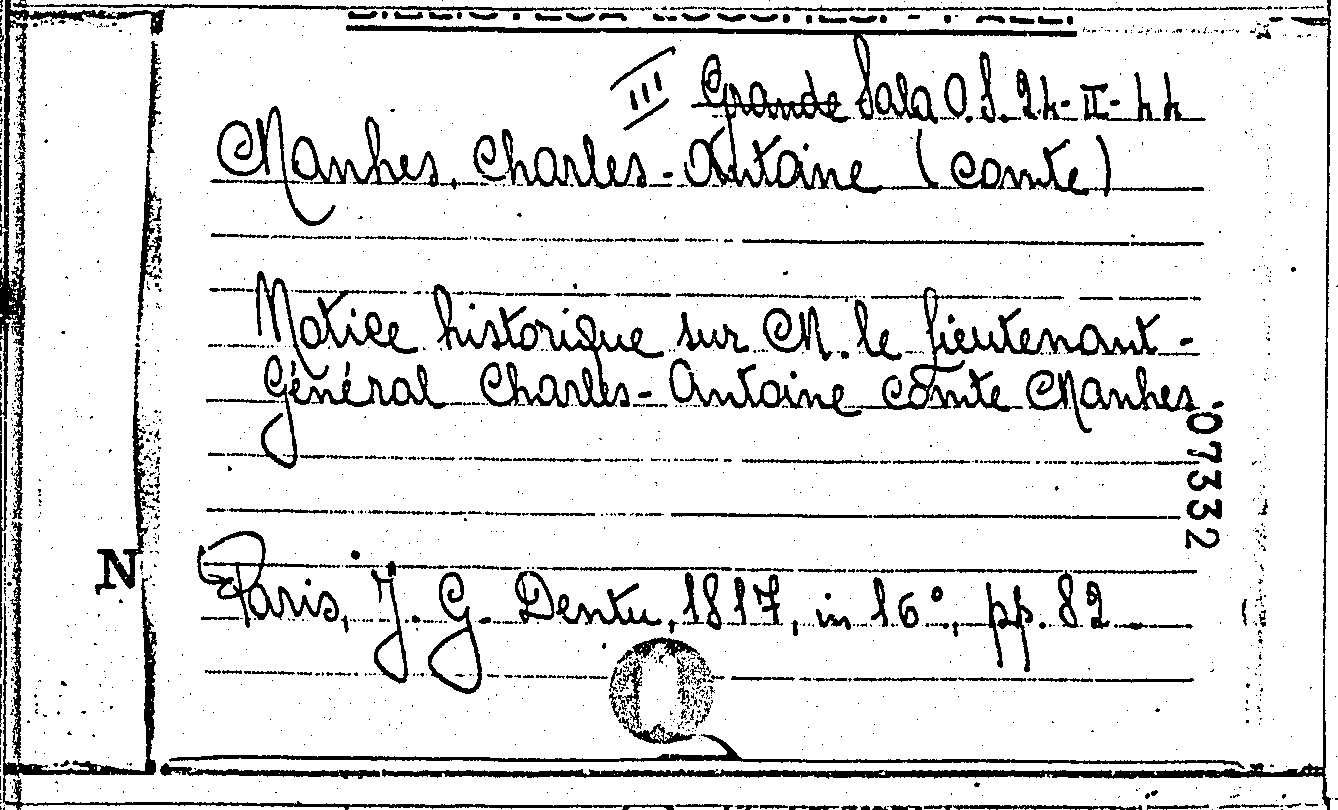 III Grande Sala O.S. 24-II-44
Manhes, Charles-Antoine (comte)
Notice historique sur M. le lieutenant-
Général Charles-Antoine comte Manhes.
07332
N
Paris, J. G. Dentu, 1817, in 16°, pp. 82